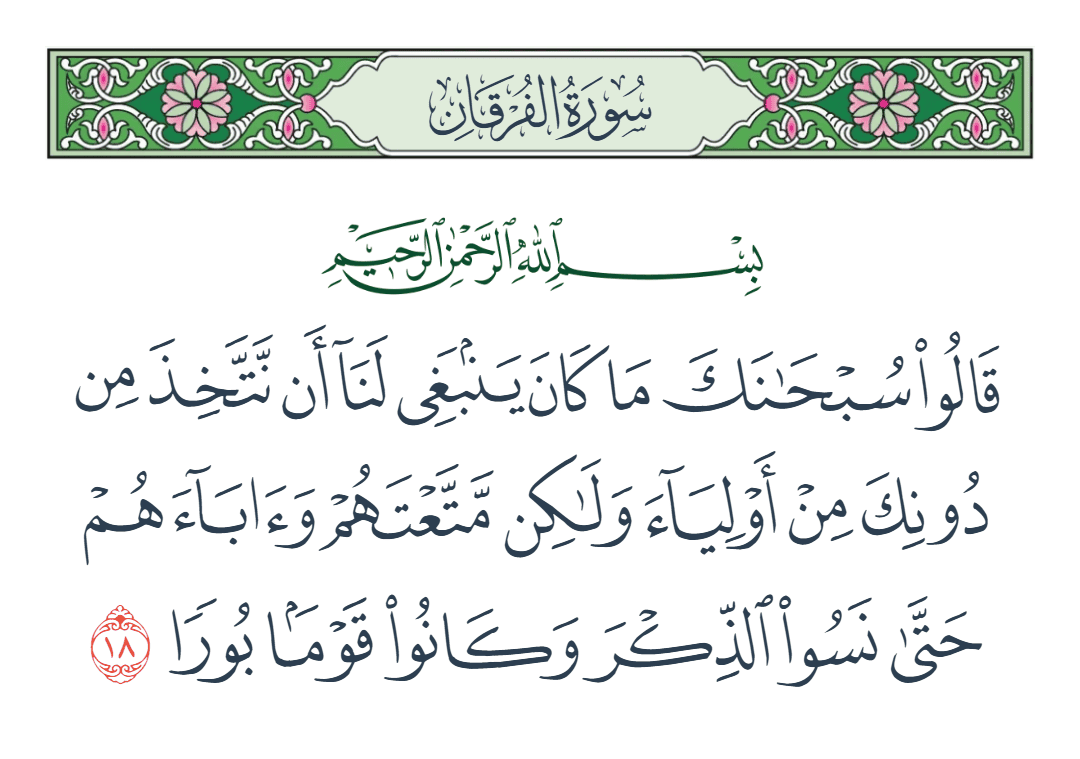 سُورَةُ الفُرْقَانِ
بِسْمِ ٱللَّهِ ٱلرَّحْمَٰنِ ٱلرَّحِيمِ
قَالُوا۟ سُبْحَـٰنَكَ مَا كَانَ يَنۢبَغِى لَنَآ أَن نَّتَّخِذَ مِن
دُونِكَ مِنْ أَوْلِيَآءَ وَلَـٰكِن مَّتَّعْتَهُمْ وَءَابَآءَهُمْ
حَتَّىٰ نَسُوا۟ ٱلذِّكْرَ وَكَانُوا۟ قَوْمَۢا بُورًا ١٨